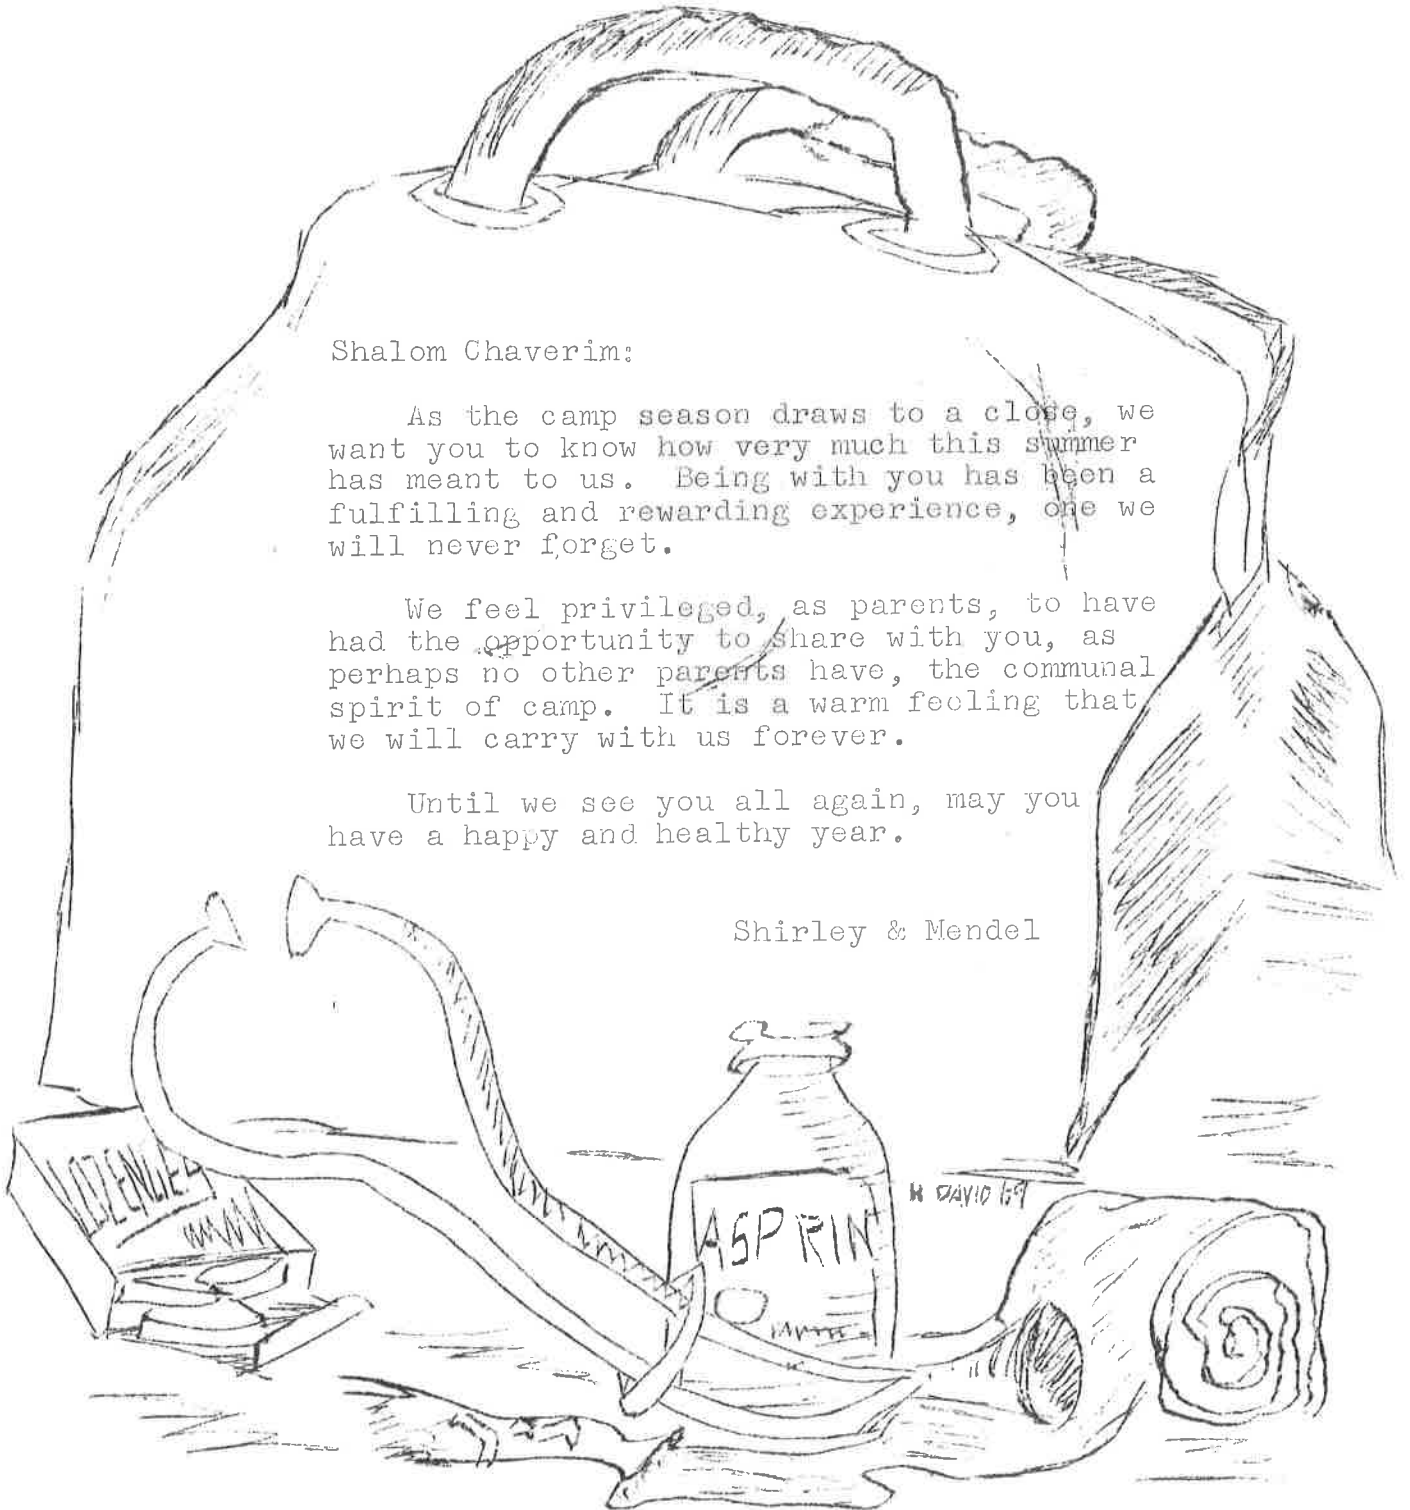 Shalom Chaverim:
As the camp season draws to a close, we
want you to know how very much this summer
has meant to us. Being with you has been a
fulfilling and rewarding experience, one we
will never forget.
We feel privileged, as parents, to have
had the opportunity to share with you, as
perhaps no other parents have, the communal
spirit of camp. It is a warm feeling that
we will carry with us forever.
Until we see you all again, may you
have a happy and healthy year.
Shirley & Mendel
ASPRIN
H DAVID 69